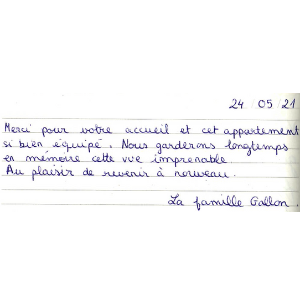 24 / 05 / 21
Merci pour votre accueil et cet appartement
si bien équipé. Nous garderons longtemps
en mémoire cette vue imprenable.
Au plaisir de revenir à nouveau.
La famille Gallon.